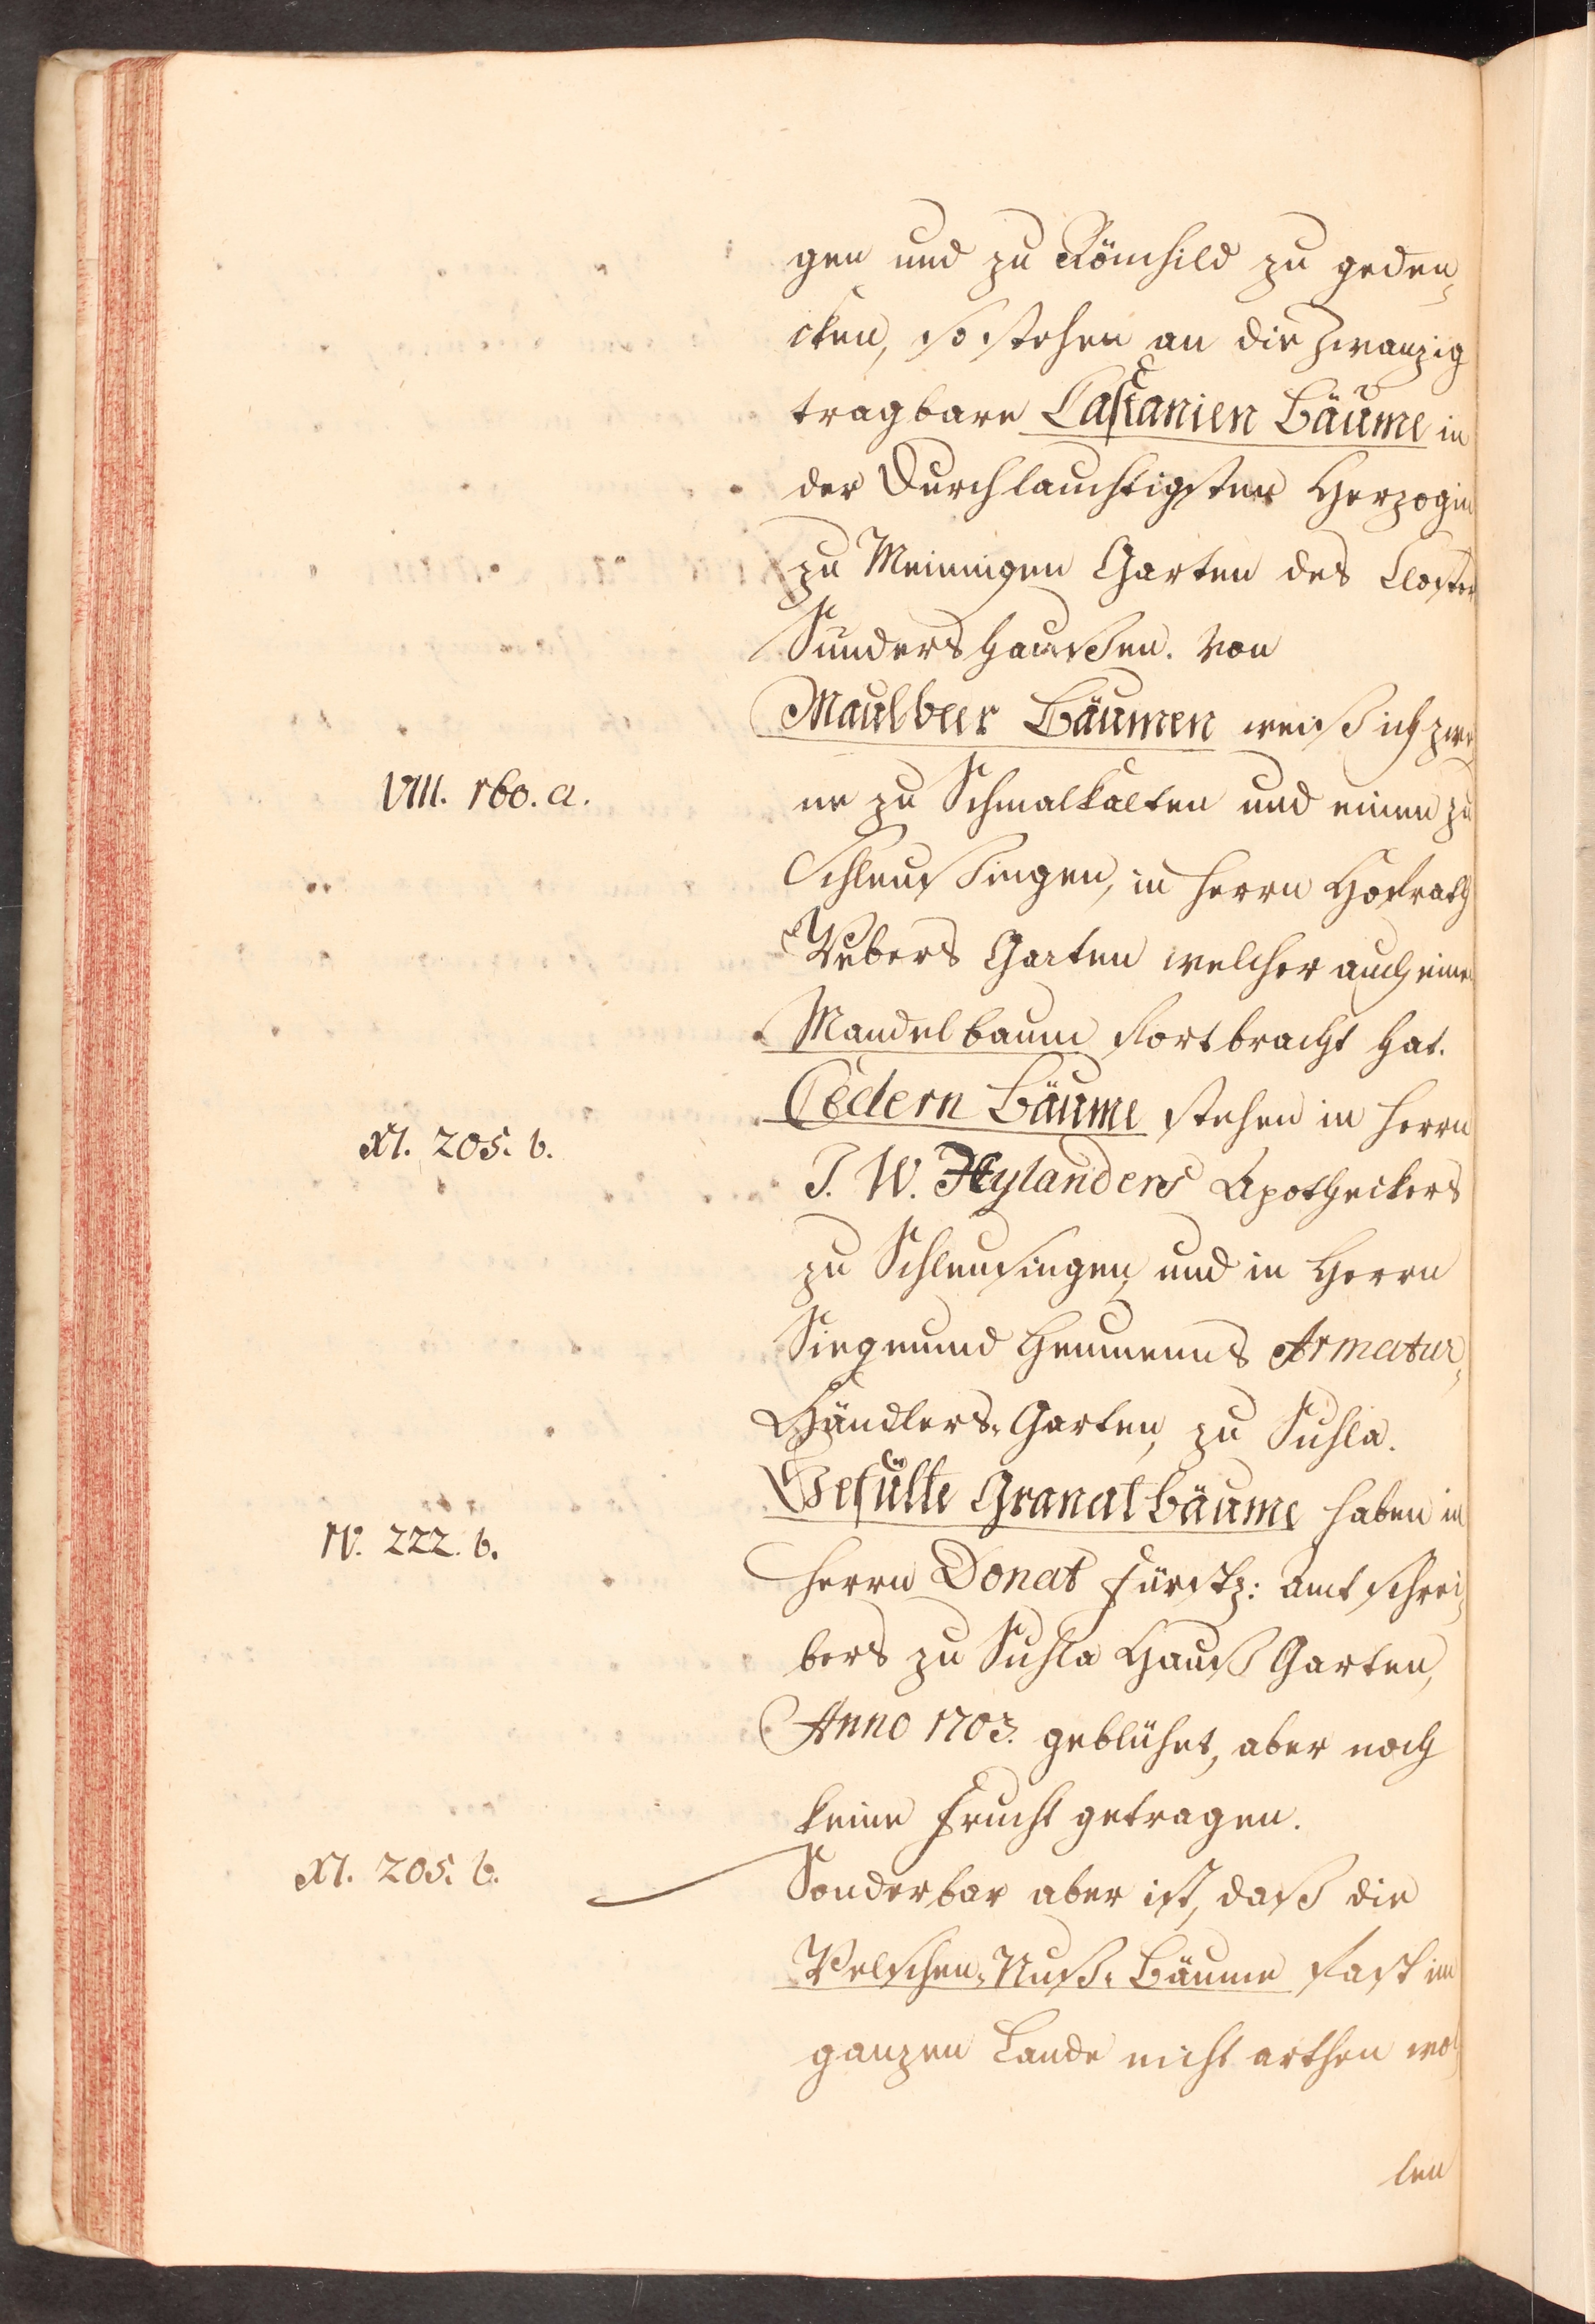 gen und zu Römhild zu geden„
cken, so stehen an die Zwanzig
tragbare Castanien Bäume in
der Durchlauchtigsten Herzogin
zu Meiningen Garten des Closter
Sünders haussen. Von
Maulbeer Bäumen weiß ich zwe
VIII. 160. a.
ne zu Schmalkalten und einen zu
Schleussingen, in Herrn Hofrath
Webers Garten welcher auch einen
Mandelbaum fortbracht hat.
Cedern Bäume stehen in Herrn
XI. 205. b.
J. W. Hylanders Apotheckers
zu Schleusingen, und in Herrn
Siegmund Armatur„
Händlers„ Garten, zu Suhla.
Gefülte Granatbäume haben in
IV. 222. b.
Herrn Donat Fürstl: Amtschrei„
bers zu Suhla Hauß Garten,
Anno 1703. geblühet, aber noch
keine Frucht getragen.
XI. 205. b.
Sonderbar aber ist, daß die
Welschen„ Nuß„ Bäume fast im
ganzen Lande nicht arthen wol
len